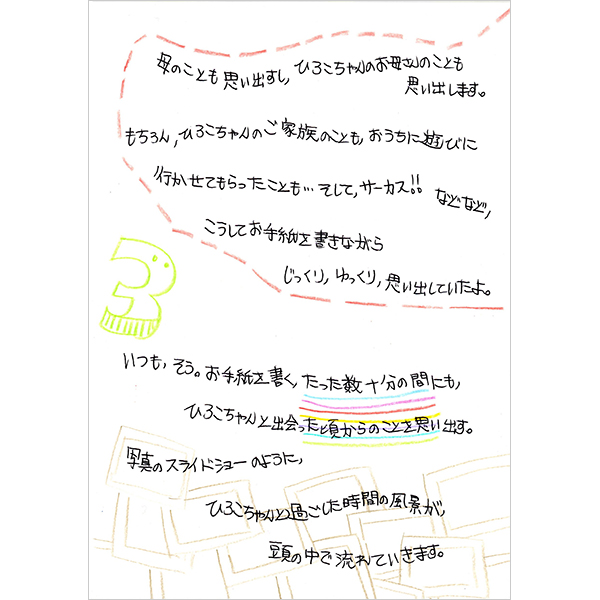 母のことも思い出すし,ひろこちゃんのお母さんのことも
思い出します。
もちろん,ひろこちゃんのご家族のことも,おうちに遊びに
行かせてもらったことも…そして,サーカス!!などなど,
こうしてお手紙を書きながら
じっくり,ゆっくり,思い出していたよ。
3
いつも,そう。お手紙を書く,たった数十分の間にも,
ひろこちゃんと出会った頃からのことを思い出す。
写真のスライドショーのように,
ひろこちゃんと過ごした時間の風景が,
頭の中で流れていきます。